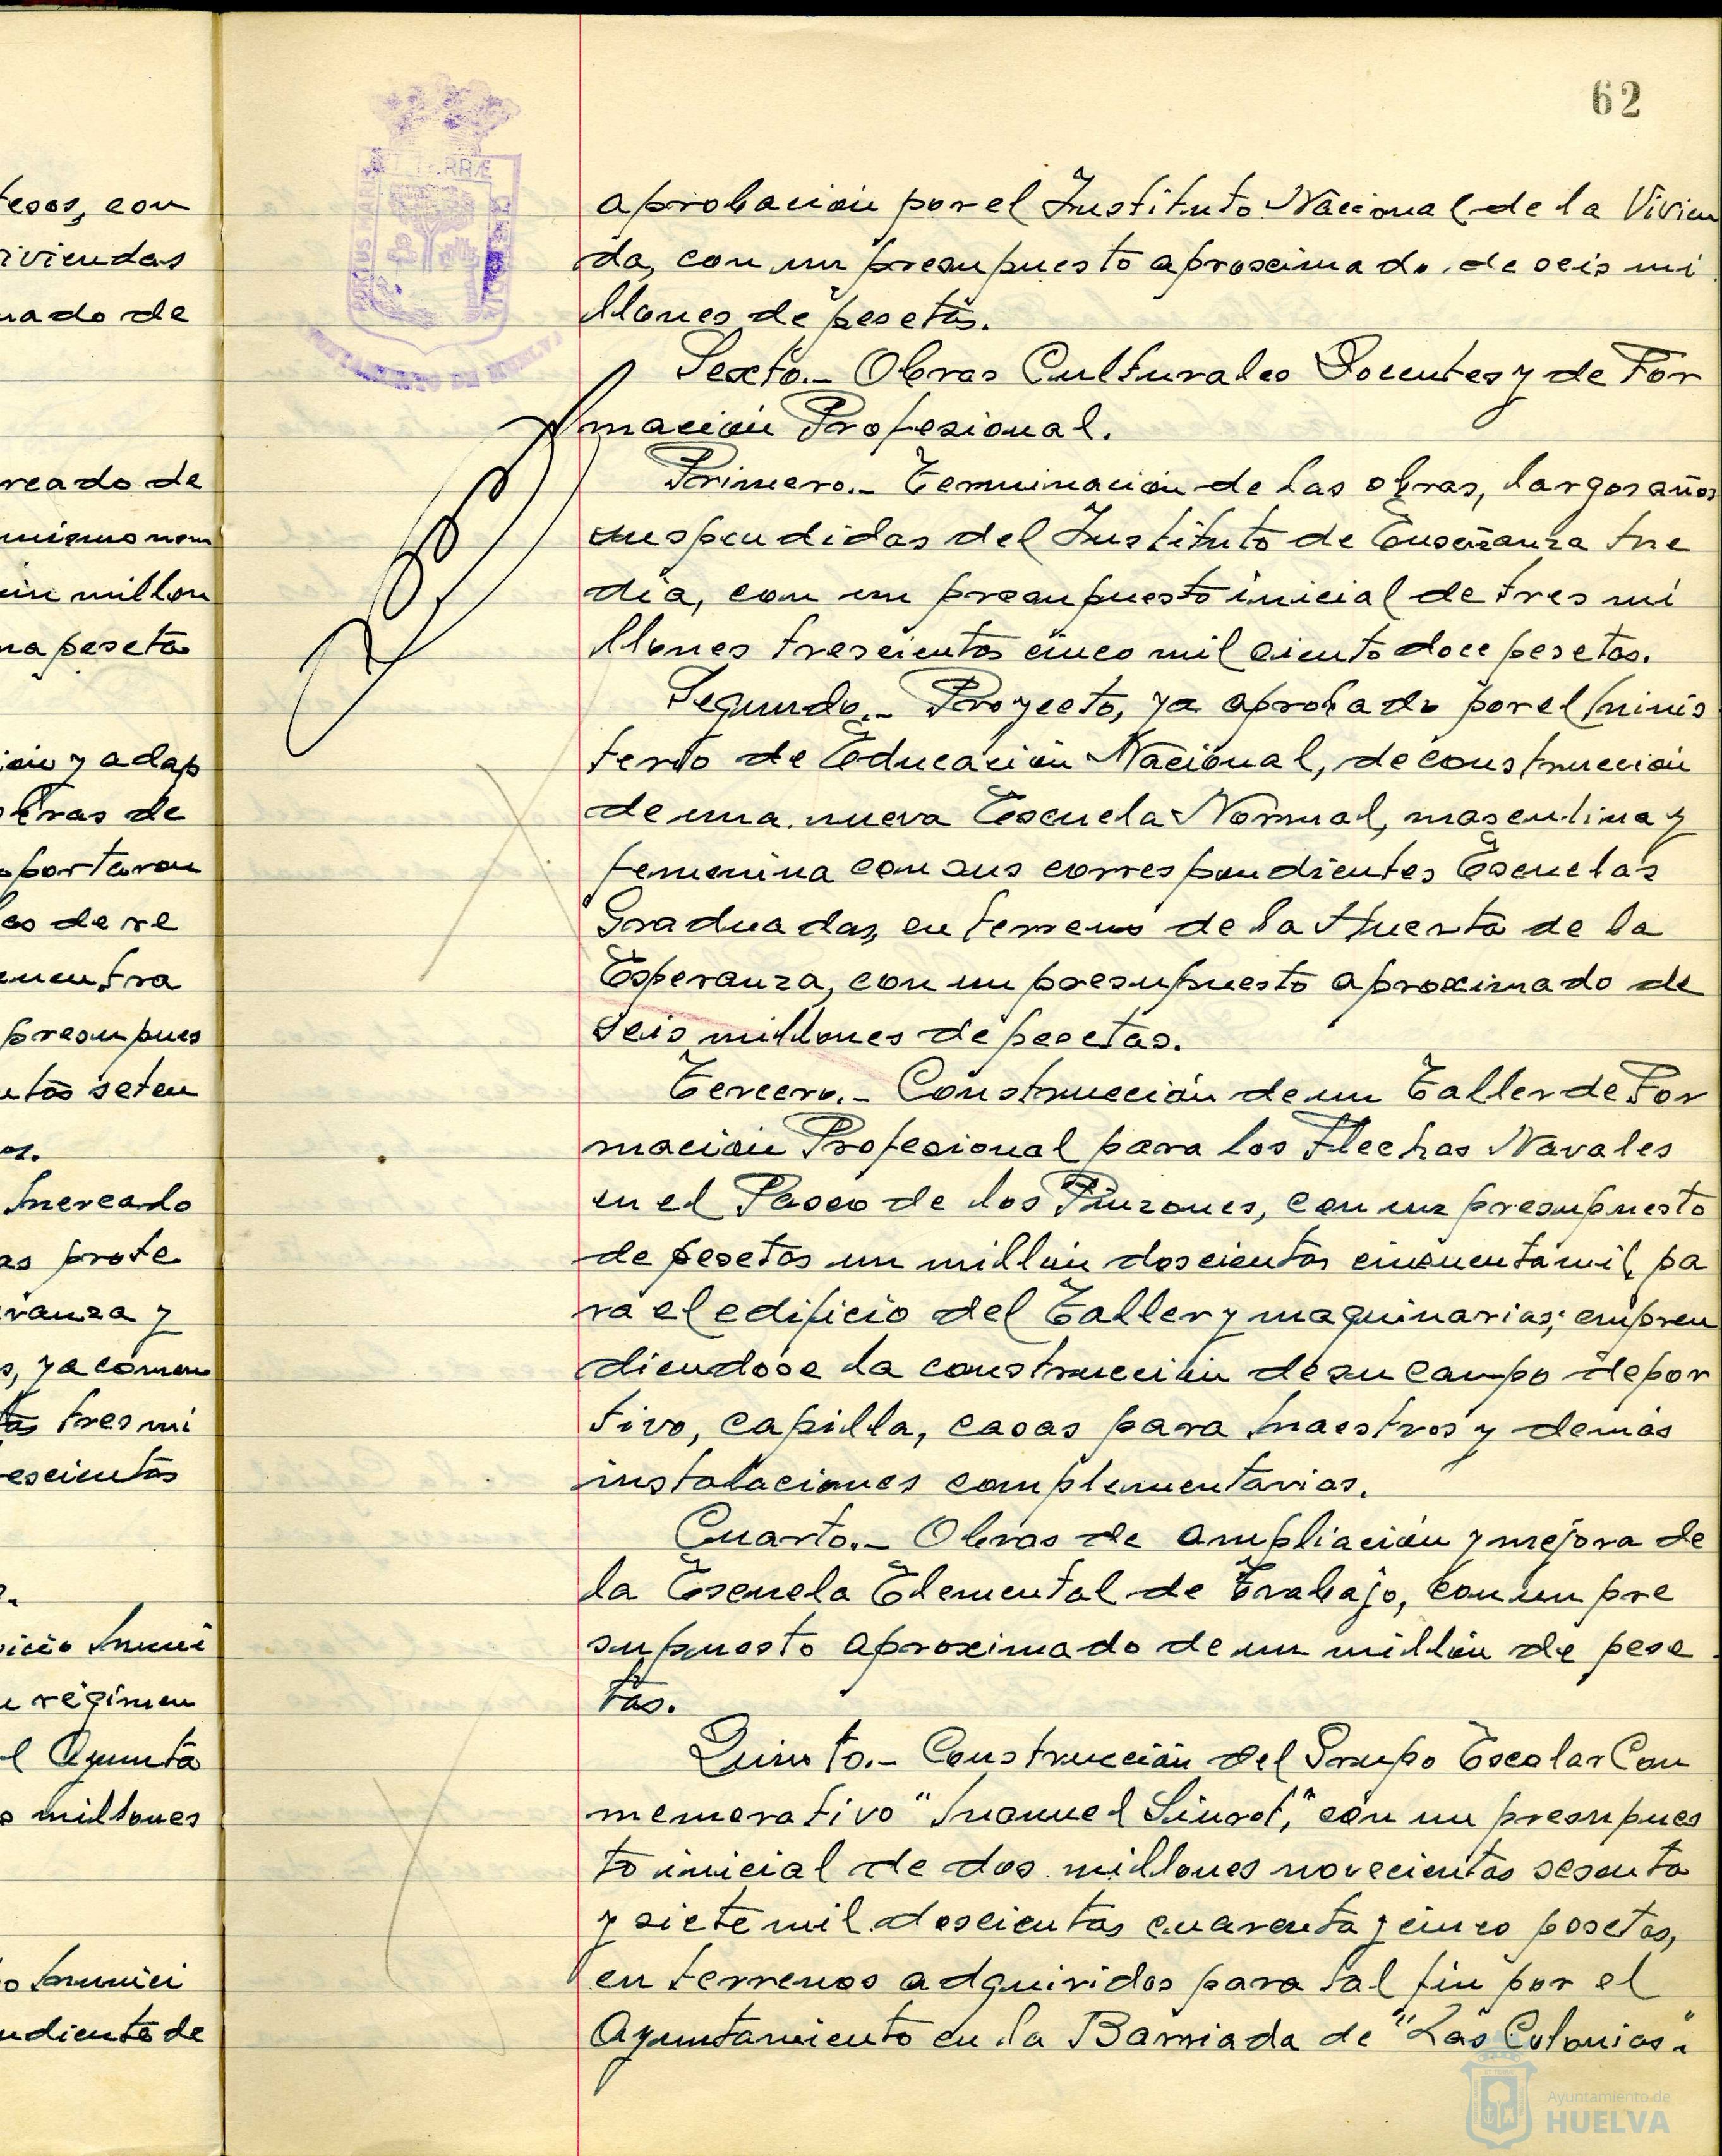 62
tesos, con
viviendas
mado de
reado de
mismo nom
un millon
na peseta
ion y adap
obras de
portaron
es de re
encuentra
presupues
ntas seten
os.
Mercado
as prote
ranza y
s, ya comen
tas tres mi
escientas
icio Muni
u régimen
l Ayunta
s millones
o Munici
ndiente de
PORTUS MARIS ET TERRÆ CUSTODIA
AYUNTAMIENTO DE HUELVA
aprobación por el Instituto Nacional de la Vivien
da, con un presupuesto aproximado de seis mi
llones de pesetas.
Sexto.- Obras Culturales Docentes y de For
mación Profesional.
Primero.- Terminación de las obras, largos años
suspendidas del Instituto de Enseñanza Me
dia, con un presupuesto inicial de tres mi
llones trescientas cinco mil ciento doce pesetas.
Segundo.- Proyecto, ya aprobado por el Minis
terio de Educación Nacional, de construcción
de una nueva Escuela Normal, masculina y
femenina con sus correspondientes Escuelas
Graduadas, en terreno de la Huerta de la
Esperanza, con un presupuesto aproximado de
seis millones de pesetas.
Tercero.- Construcción de un Taller de For
mación Profesional para los Flechas Navales
en el Paseo de los Pinzones, con un presupuesto
de pesetas un millón doscientas cincuenta mil, pa
ra el edificio del Taller y maquinarias; empren
diendose la construcción de su campo depor
tivo, capilla, casas para Maestros y demás
instalaciones complementarias.
Cuarto.- Obras de ampliación y mejora de
la Escuela Elemental de Trabajo, con un pre
supuesto aproximado de un millón de pese
tas.
Quinto.- Construcción del Grupo Escolar Con
memorativo "Manuel Siurot," con un presupues
to inicial de dos millones novecientas sesenta
y siete mil doscientas cuarenta y cinco pesetas,
en terrenos adquiridos para tal fin por el
Ayuntamiento en la Barriada de "Las Colonias".
Ayuntamiento de
HUELVA